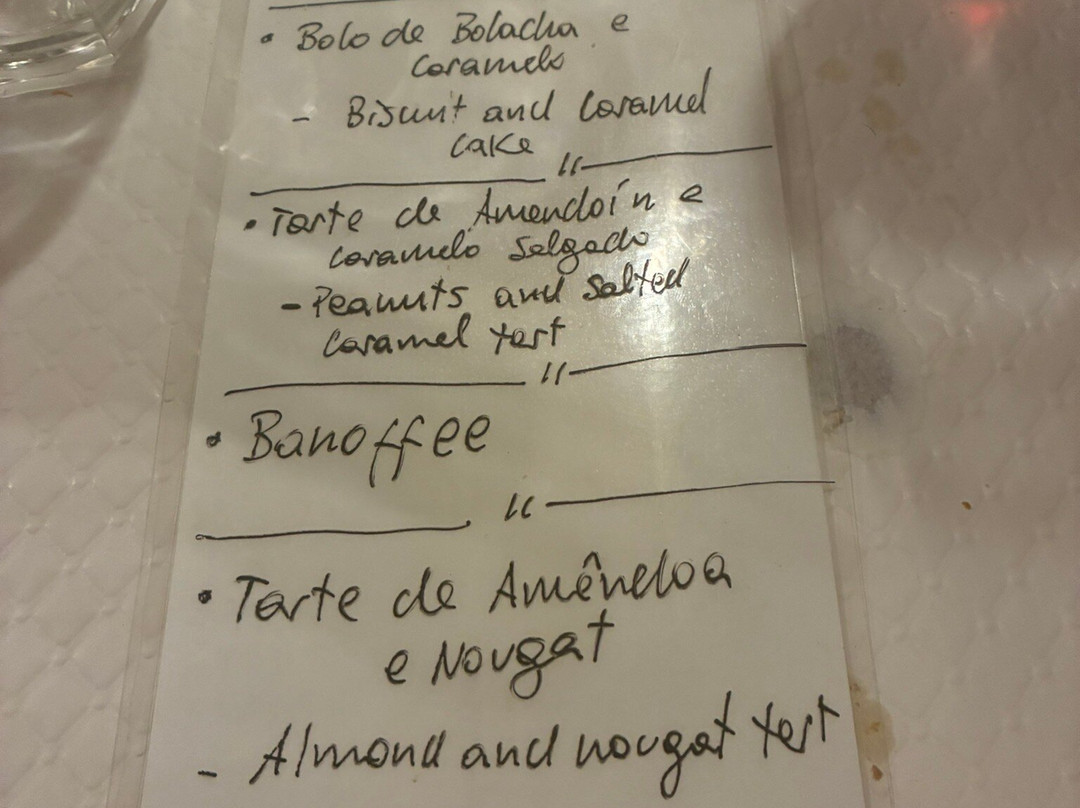 • Bolo de Bolacha e
Caramelo
- Biscuit and Caramel
Cake
• Tarte de Amendoín e
Caramelo Salgado
- Peanuts and Salted
Caramel tart
• Banoffee
• Tarte de Amêndoa
e Nougat
- Almond and nougat tart